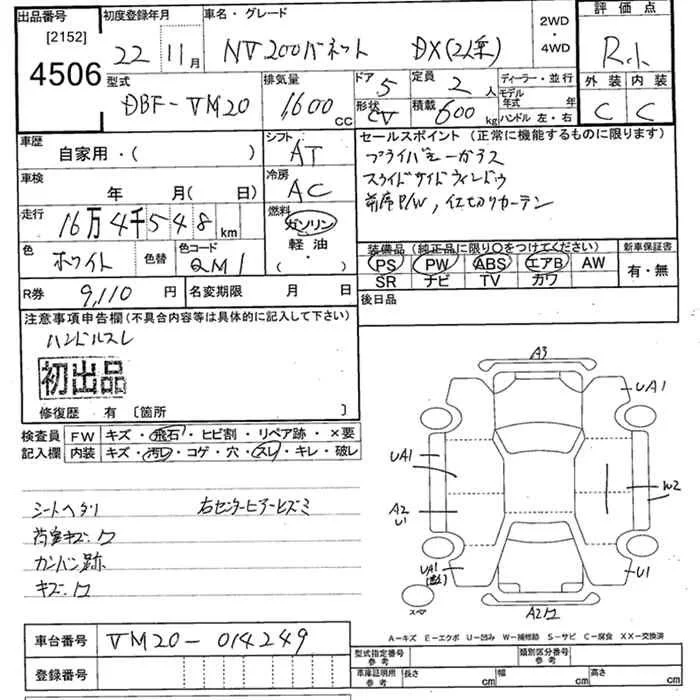 出品番号
[2152]
4506
初度登録年月
22年 11月
車名・グレード
NV200バネット DX(2人乗)
2WD
・
4WD
評価点
R.小
外装 内装
C C
型式
DBF-VM20
排気量
1,600 CC
ドア 5
形状 CV
定員 2人
積載 600 kg
ディーラー・並行
モデル年式 年
ハンドル 左・右
車歴
自家用・( )
シフト
AT
セールスポイント(正常に機能するものに限ります)
プライバシーガラス
スライドサイドウィンドウ
前席P/W,仕切りカーテン
車検
年 月( 日)
冷房
AC
走行
16万4千548 km
燃料
ガソリン
軽油
( )
色
ホワイト
色替
色コード
QM1
装備品(純正品に限り○をつけてください)
PS PW ABS エアB AW
SR ナビ TV カワ
新車保証書
有・無
R券 9,110 円
名変期限 月 日
後日品
注意事項申告欄(不具合内容等は具体的に記入して下さい)
ハンドルスレ
初出品
修復歴 有 〔箇所 〕
検査員記入欄
FW キズ・飛石・ヒビ割・リペア跡・×要
内装 キズ・汚レ・コゲ・穴・スレ・キレ・破レ
シートヘタリ 右センターピラーヒズミ
荷室キズ.ワ
カンバン跡
キズ.ワ
A3
UA1
UA1
A2
U1
W2
UA1
U1
A2ワ
A-キズ E-エクボ U-凹み W-補修跡 S-サビ C-腐食 XX-交換済
車台番号 VM20-014249
登録番号
型式指定番号
参考
類別区分番号
参考
車庫証明用
参考
長さ cm 幅 cm 高さ cm